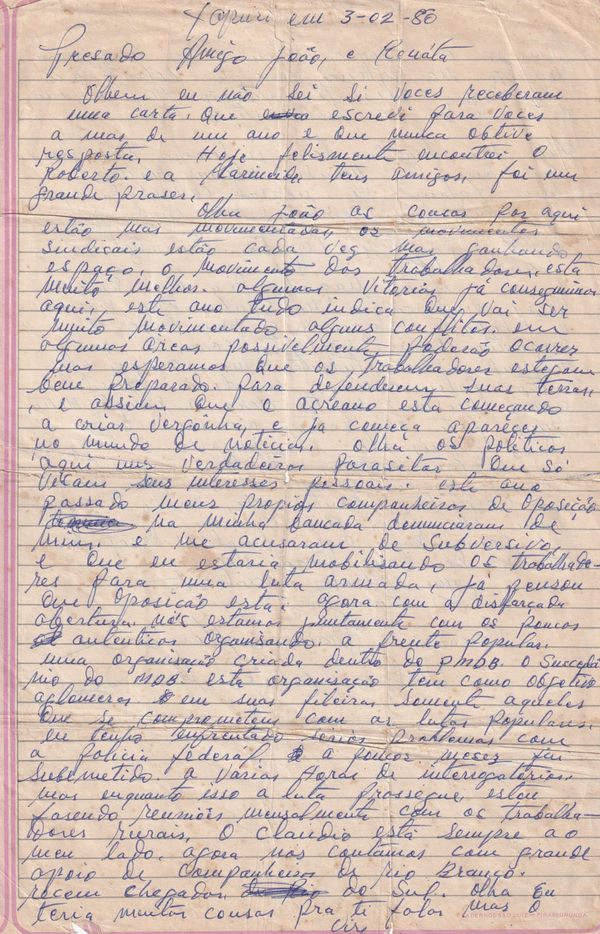 Xapuri em 3-02-80
Presado Amigo João, e Renáta
Olhem eu não sei si voces receberam
uma carta, que escrevi para voces
a mas de um ano e que nunca obtive
resposta, Hoje felismente encontrei o
Roberto. e a teus amigos, foi um
grande praser,
Olha João as cousas por aqui
estão mas movimentadas, os movimentos
sindicais estão cada veg mas ganhando
espaço, o movimento dos trabalhadores, esta
muito melhor. algumas vitorias já conseguimos
aqui, este ano tudo indica que vai ser
muito movimentado alguns conflitos. em
algumas áreas possivelmente poderão ocorrer
mas esperamos que os trabalhadores estejam
bem preparado. para defenderem suas terras,
, e assim que o acreano esta começando
a criar vergonha, e já começa aparecer
no mundo de noticia. olha os politicos
aqui uns verdadeiros parasitas que só
vetam seus interesses pessoais. este ano
passado meus propios companheiros de oposição
na minha bancada denunciaram de
mim, e me acusaram de subversivo,
e que eu estaria, mobilizando os trabalhado-
res para uma luta armada, já pensou
que oposição esta. agora com a disfarçada
abertura, nós estamos juntamente com os poucos
autenticos organisando. a frente popular.
uma organisação criada dentro do PMDB. o sucessor
mo do MDB. esta organisação tem como objetivo
aglomerar em suas fileiras somente aqueles
que se comprometem com as lutas populares.
eu tenho enfrentado serios problemas com
a policia federal a poucos meses fui
submetido. a varias horas de interrogatórios.
mas enquanto isso a luta prossegue, estou
fasendo reuniões mensalmente com os trabalha-
dores rurais, O Claudio está sempre ao
meu lado, agora nos contamos com grande
apoio de companheiros de rio Branco.
recem chegados do Sul. olha eu
teria muitas cousas pra ti falar mas o